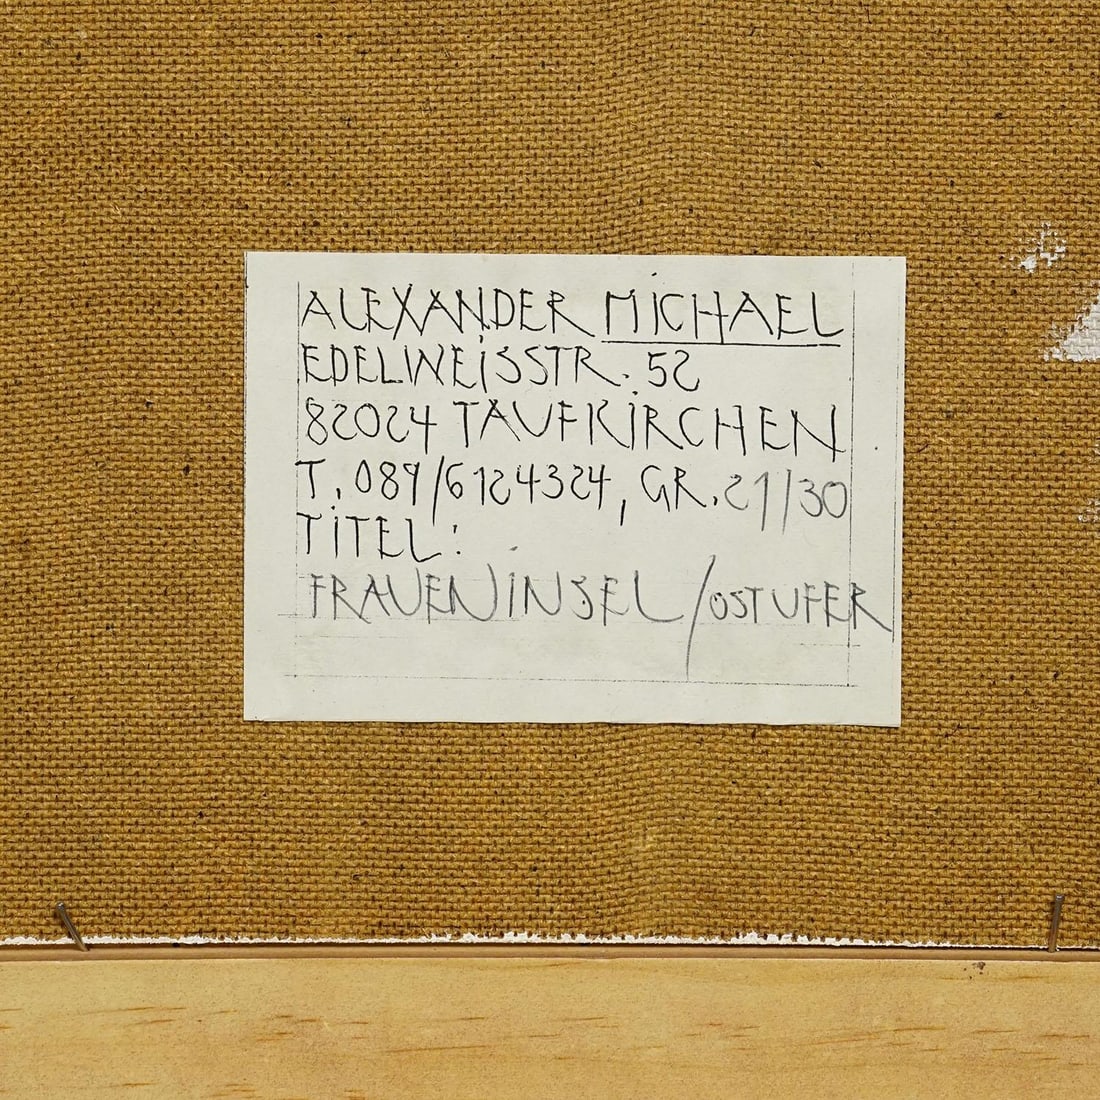 ALEXANDER MICHAEL
EDELWEISSTR. 52
82024 TAUFKIRCHEN
T. 089/6124324, GR. 21/30
TITEL:
FRAUENINSEL/OSTUFER